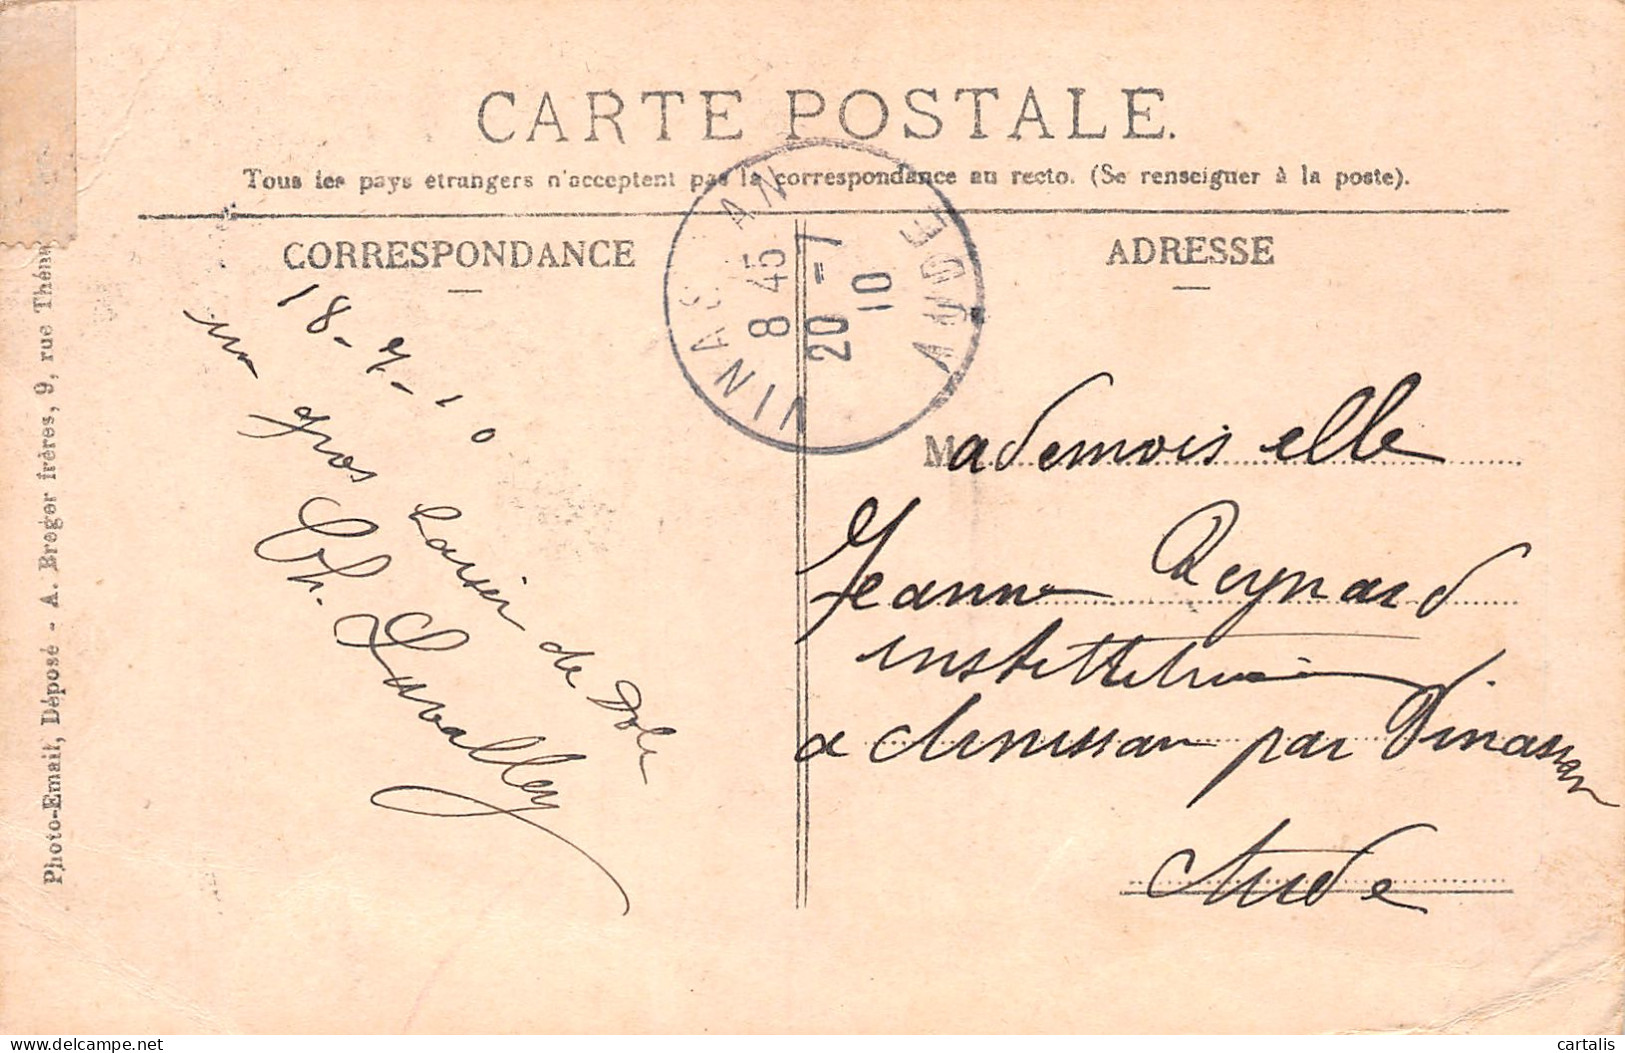 CARTE POSTALE.
Tous les pays etrangers n'acceptent pas la correspondance au recto. (Se renseigner à la poste).
CORRESPONDANCE
ADRESSE
VINASSAN
AUDE
8 45
20 - 7
10
18-7-10
un gros baiser de Dole
Ch. Lavalley
Mademoiselle
Jeanne Reynard
institutrice
a Armissan par Vinassan
Aude
Photo-Email, Déposé - A. Breger frères, 9, rue Thén
cartalis